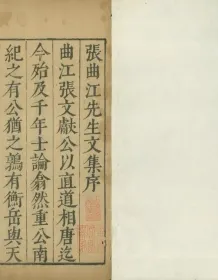 張曲江先生文集序
曲江張文獻公以直道相唐迄
今殆及千年士論翕然重公南
紀之有公猶之鶉有衡岳與天